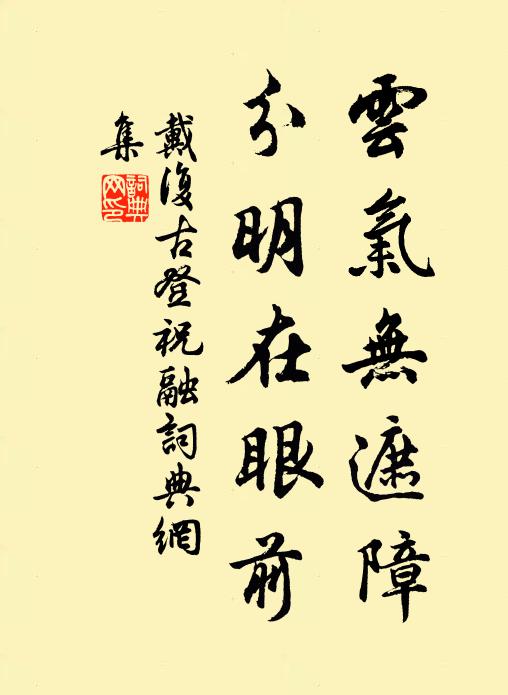 雲氣無遮障
分明在眼前
戴復古登祝融詞典網
集
詞典
网印